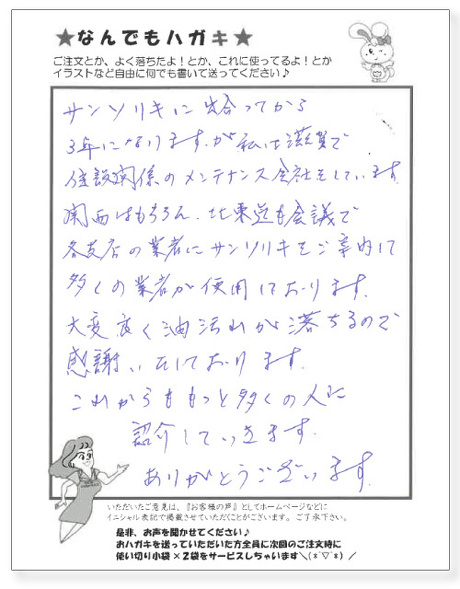 ★なんでもハガキ★
ご注文とか、よく落ちたよ！とか、これに使ってるよ！とか
イラストなど自由に何でも書いて送ってください♪
サンソリキに出会ってから
3年になりますが私は滋賀で
住設関係のメンテナンス会社をしています。
関西はもちろん、北東道も会議で
各支店の業者にサンソリキをご案内して
多くの業者が使用しております。
大変良く油汚れが落ちるので
感謝いたしております。
これからももっと多くの人に
紹介していきます。
ありがとうございます。
いただいたご意見は、『お客様の声』としてホームページなどに
イニシャル表記で掲載させていただくことがございます。ご了承下さい。
是非、お声を聞かせてください♪
おハガキを送っていただいた方全員に次回のご注文時に
使い切り小袋×2袋をサービスしちゃいます＼(*ˇ▽ˇ*)／